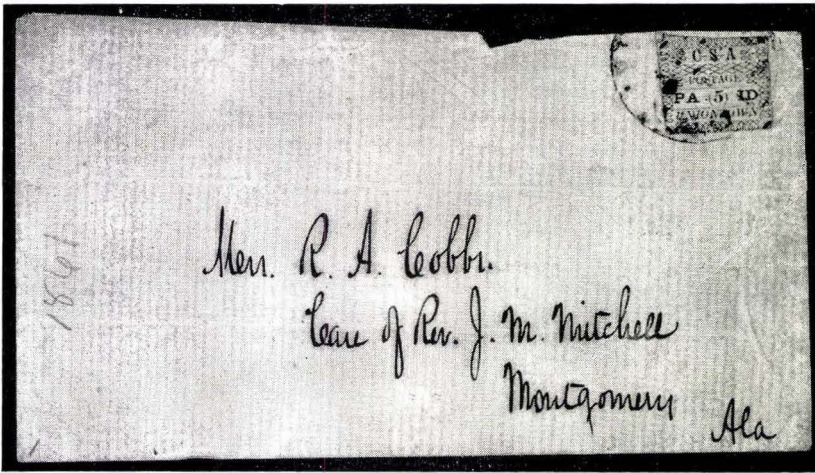 C S A
POSTAGE
PA (5) ID
UNIONTOWN
Mrs. R. A. Cobbs.
Care of Rev. J. M. Mitchell
Montgomery
Ala
1861